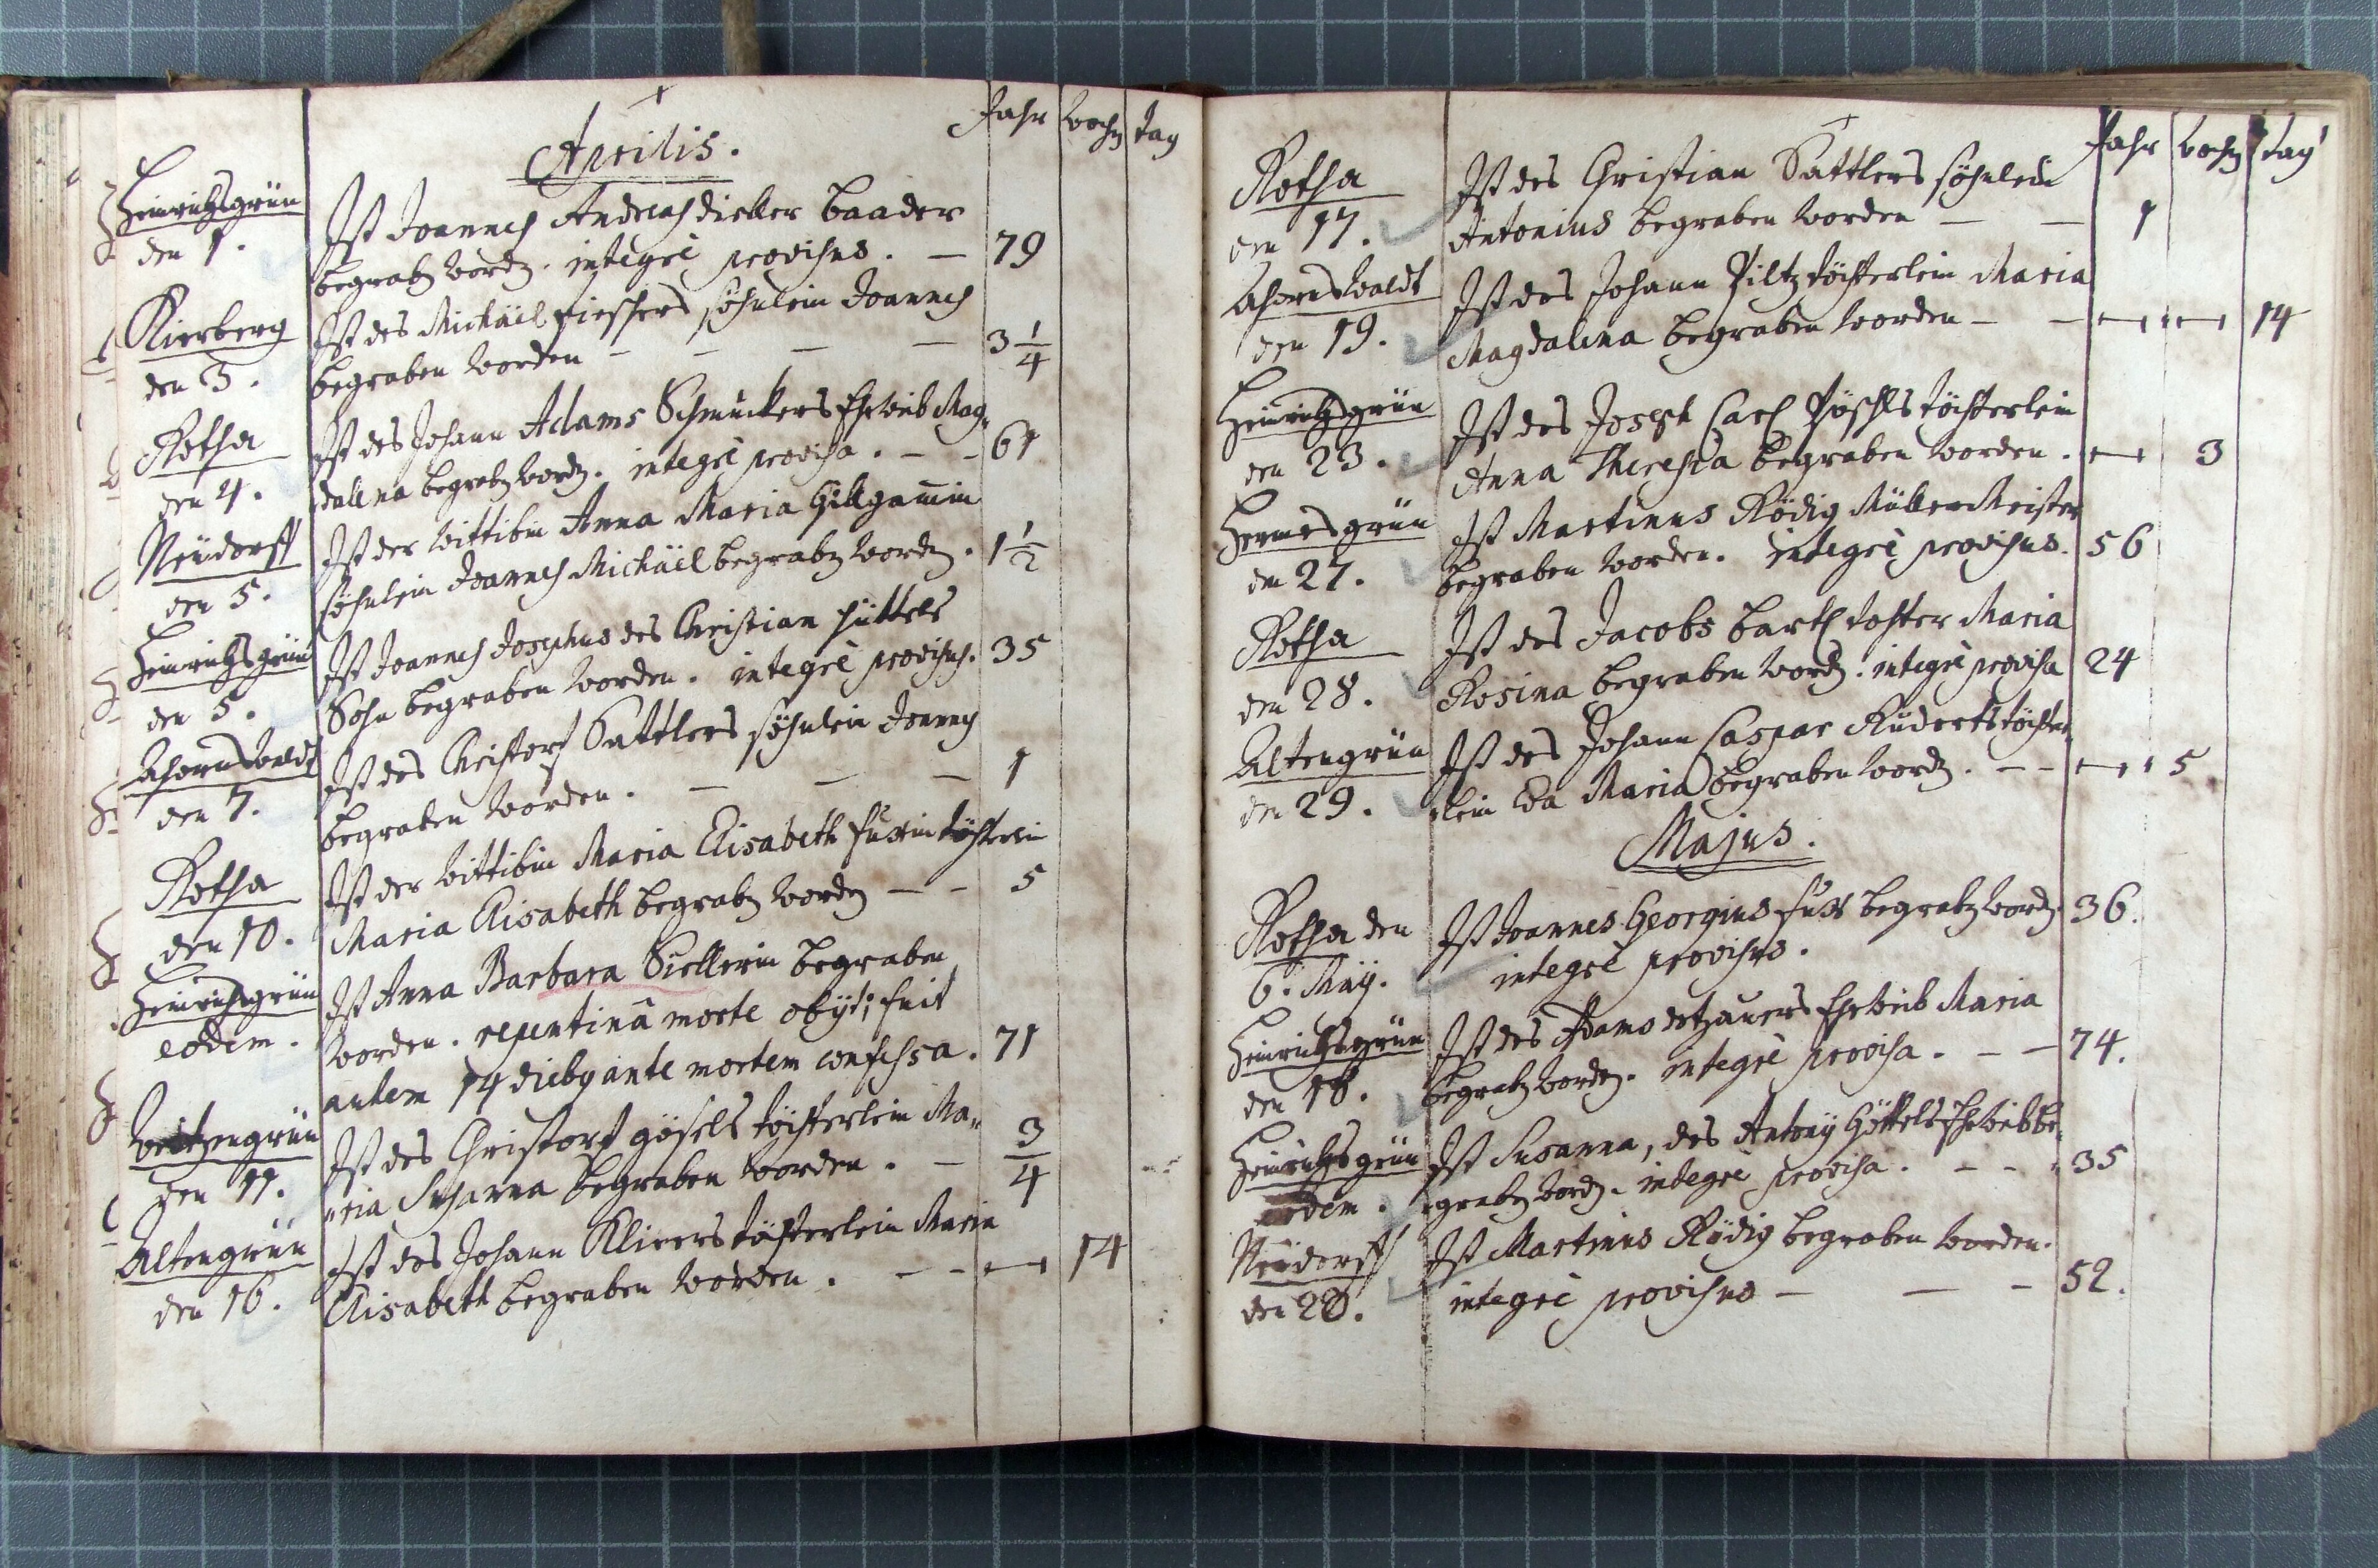 Jahr Wochen Tag
Aprilis.
Heinrichsgrün
den 1.
Ist Joannes Andreas Disller Baader
begraben worden. integrè provisus. — 79
Kirrberg
den 3.
Ist des Michäel Fischers söhnlein Joannes
begraben worden — — — — 3 1/4
Rotha
den 4.
Ist des Johann Adams Schmuckers Eheweib Mag„
dalena begraben worden. integrè provisa. — — 61
Neüdorff
den 5.
Ist der Wittibin Anna Maria
söhnlein Joannes Michäel begraben worden. 1 1/2
Heinrichsgrün
den 5.
Ist Joannes Josephus des Christian Hüttels
Sohn begraben worden. integrè provisus. 35
Ahornswaldt
den 7.
Ist des Christoph Sattlers söhnlein Joannes
begraben worden. — — — 1
Rotha
den 10.
Ist der Wittibin Maria Elisabeth Fussin töchterlein
Maria Elisabeth begraben worden — — 5
Heinrichsgrün
eodem.
Ist Anna Barbara Siellerin begraben
worden. repentinâ morte obijt; fuit
autem 14 diebus ante mortem confessa. 71
Waitzengrün
den 11.
Ist des Christoph gösels töchterlein Ma„
„ria Susanna begraben worden. — 3/4
Altengrün
den 16.
Ist des Johann Klierers töchterlein Maria
Elisabeth begraben worden. — — — 14
Jahr Wochen tag
Rotha
den 17.
Ist des Christian Sattlers söhnlein
Antonius begraben worden — — 1
Ahornswaldt
den 19.
Ist des Johann Piltz töchterlein Maria
Magdalena begraben worden — — — — 14
Heinrichsgrün
den 23.
Ist des Joseph Carl Pöschls töchterlein
Anna Theresia begraben worden. — 3
Hermesgrün
den 27.
Ist Martinus Rödig Müller Meister
begraben worden. integrè provisus. 56
Rotha
den 28.
Ist des Jacobs Bartl tochter Maria
Rosina begraben worden. integrè provisa 24
Altengrün
den 29.
Ist des Johann Caspar Rüderts töchter„
„lein Eva Maria begraben worden. — — — 5
Majus.
Rotha den
6. Maij.
Ist Joannes Georgius Fuss begraben worden. 36.
integrè provisus.
Heinrichsgrün
den 18.
Ist des Adams dotzauers Eheweib Maria
begraben worden. integrè provisa. — — 74.
Heinrichsgrün
eodem.
Ist Susanna, des Antonij Höttels Eheweib be„
„graben worden. integrè provisa. — — 35
Neüdorff
den 28.
Ist Martinus Rödig begraben worden.
integrè provisus — — — 52.